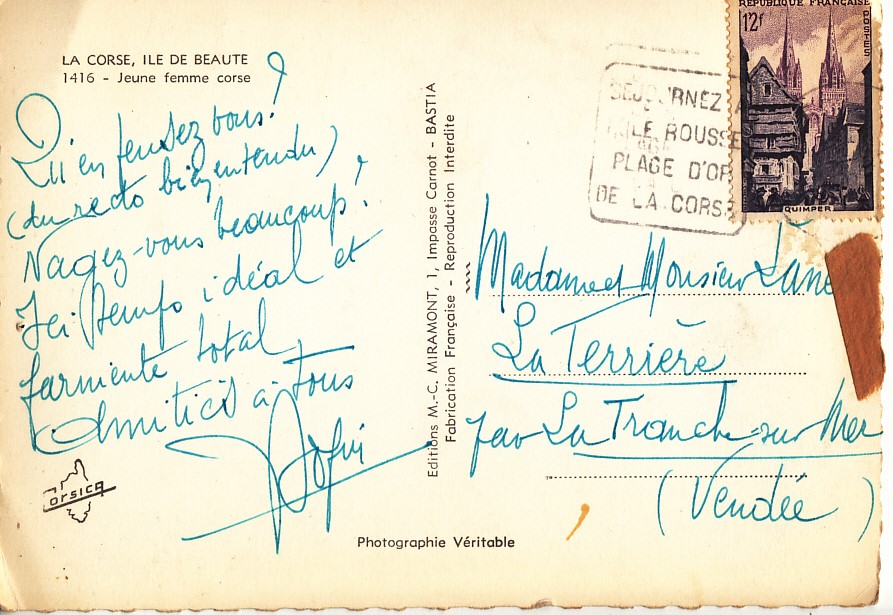 LA CORSE, ILE DE BEAUTE
1416 - Jeune femme corse
Qu'en pensez vous?
(du recto bien entendu)
Nagez-vous beaucoup?
Ici temps idéal et
farniente total,
Amitiés à Tous
Corsica
Editions M.-C. MIRAMONT, 1, Impasse Carnot - BASTIA
Fabrication Française - Reproduction Interdite
Photographie Véritable
SEJOURNEZ A
L'ILE ROUSSE
PLAGE D'OR
DE LA CORSE
REPUBLIQUE FRANÇAISE
12f
POSTES
QUIMPER
Madame et Monsieur
La Terrière
par La Tranche-sur Mer
(Vendée)